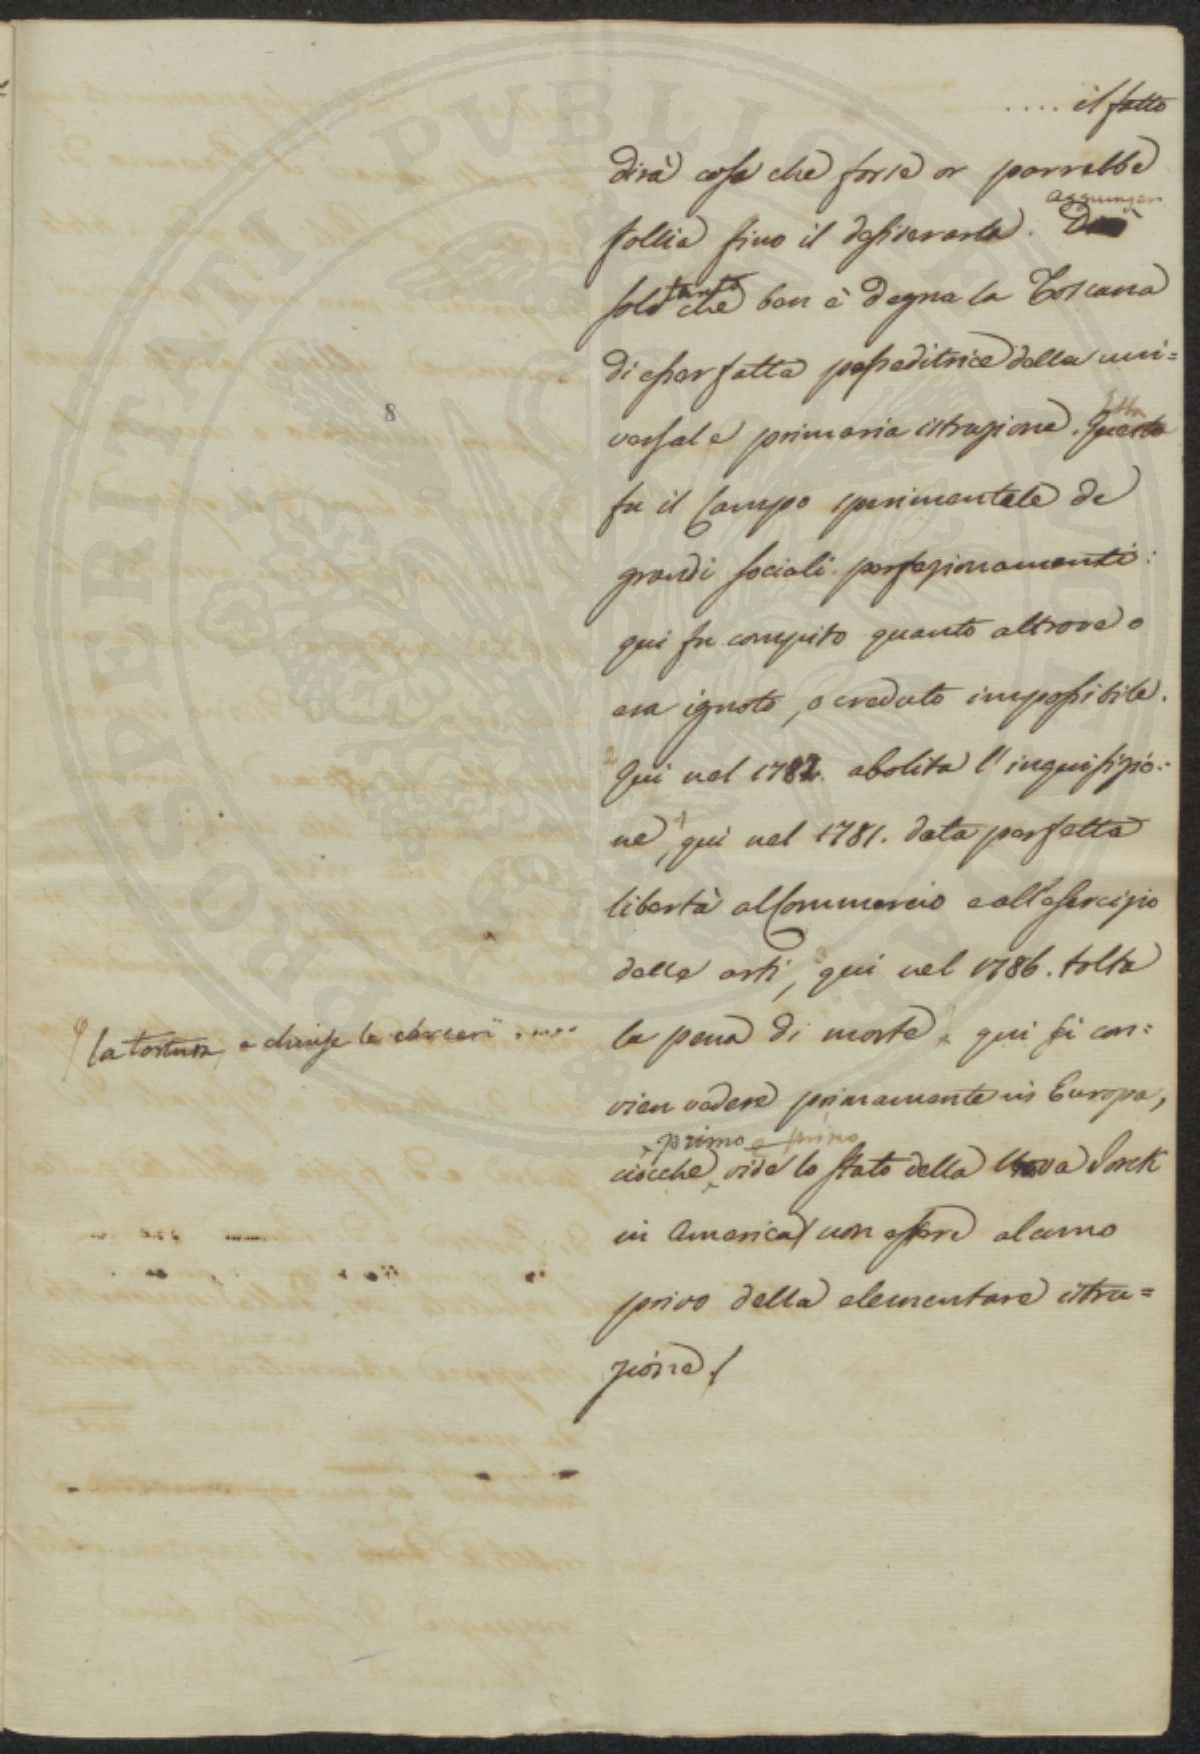 .... il fatto
dirà cosa che forse or parrebbe
aggiungerò
follia fino il desiderarla.
tanto
solo che ben è degna la Toscana
di esser fatta posseditrice della uni=
versale primaria istruzione. Questa
fu il Campo sperimentale de
grandi sociali perfezionamenti:
qui fu compito quanto altrove o
era ignoto, o creduto impossibile.
2
Qui nel 1782. abolita l'inquisizio=
1
ne, qui nel 1781. data perfetta
libertà al Commercio e all'esercizio
3
delle arti, qui nel 1786. tolta
la pena di morte, qui si con=
vien vedere primamente in Europa,
primo e primo
ciocche vide lo Stato della Nuova Jorck
in America, non essere alcuno
privo della elementare istru=
zione.
la tortura, e chiuse le carceri ....
8
PROSPERITATI PVBLICAE